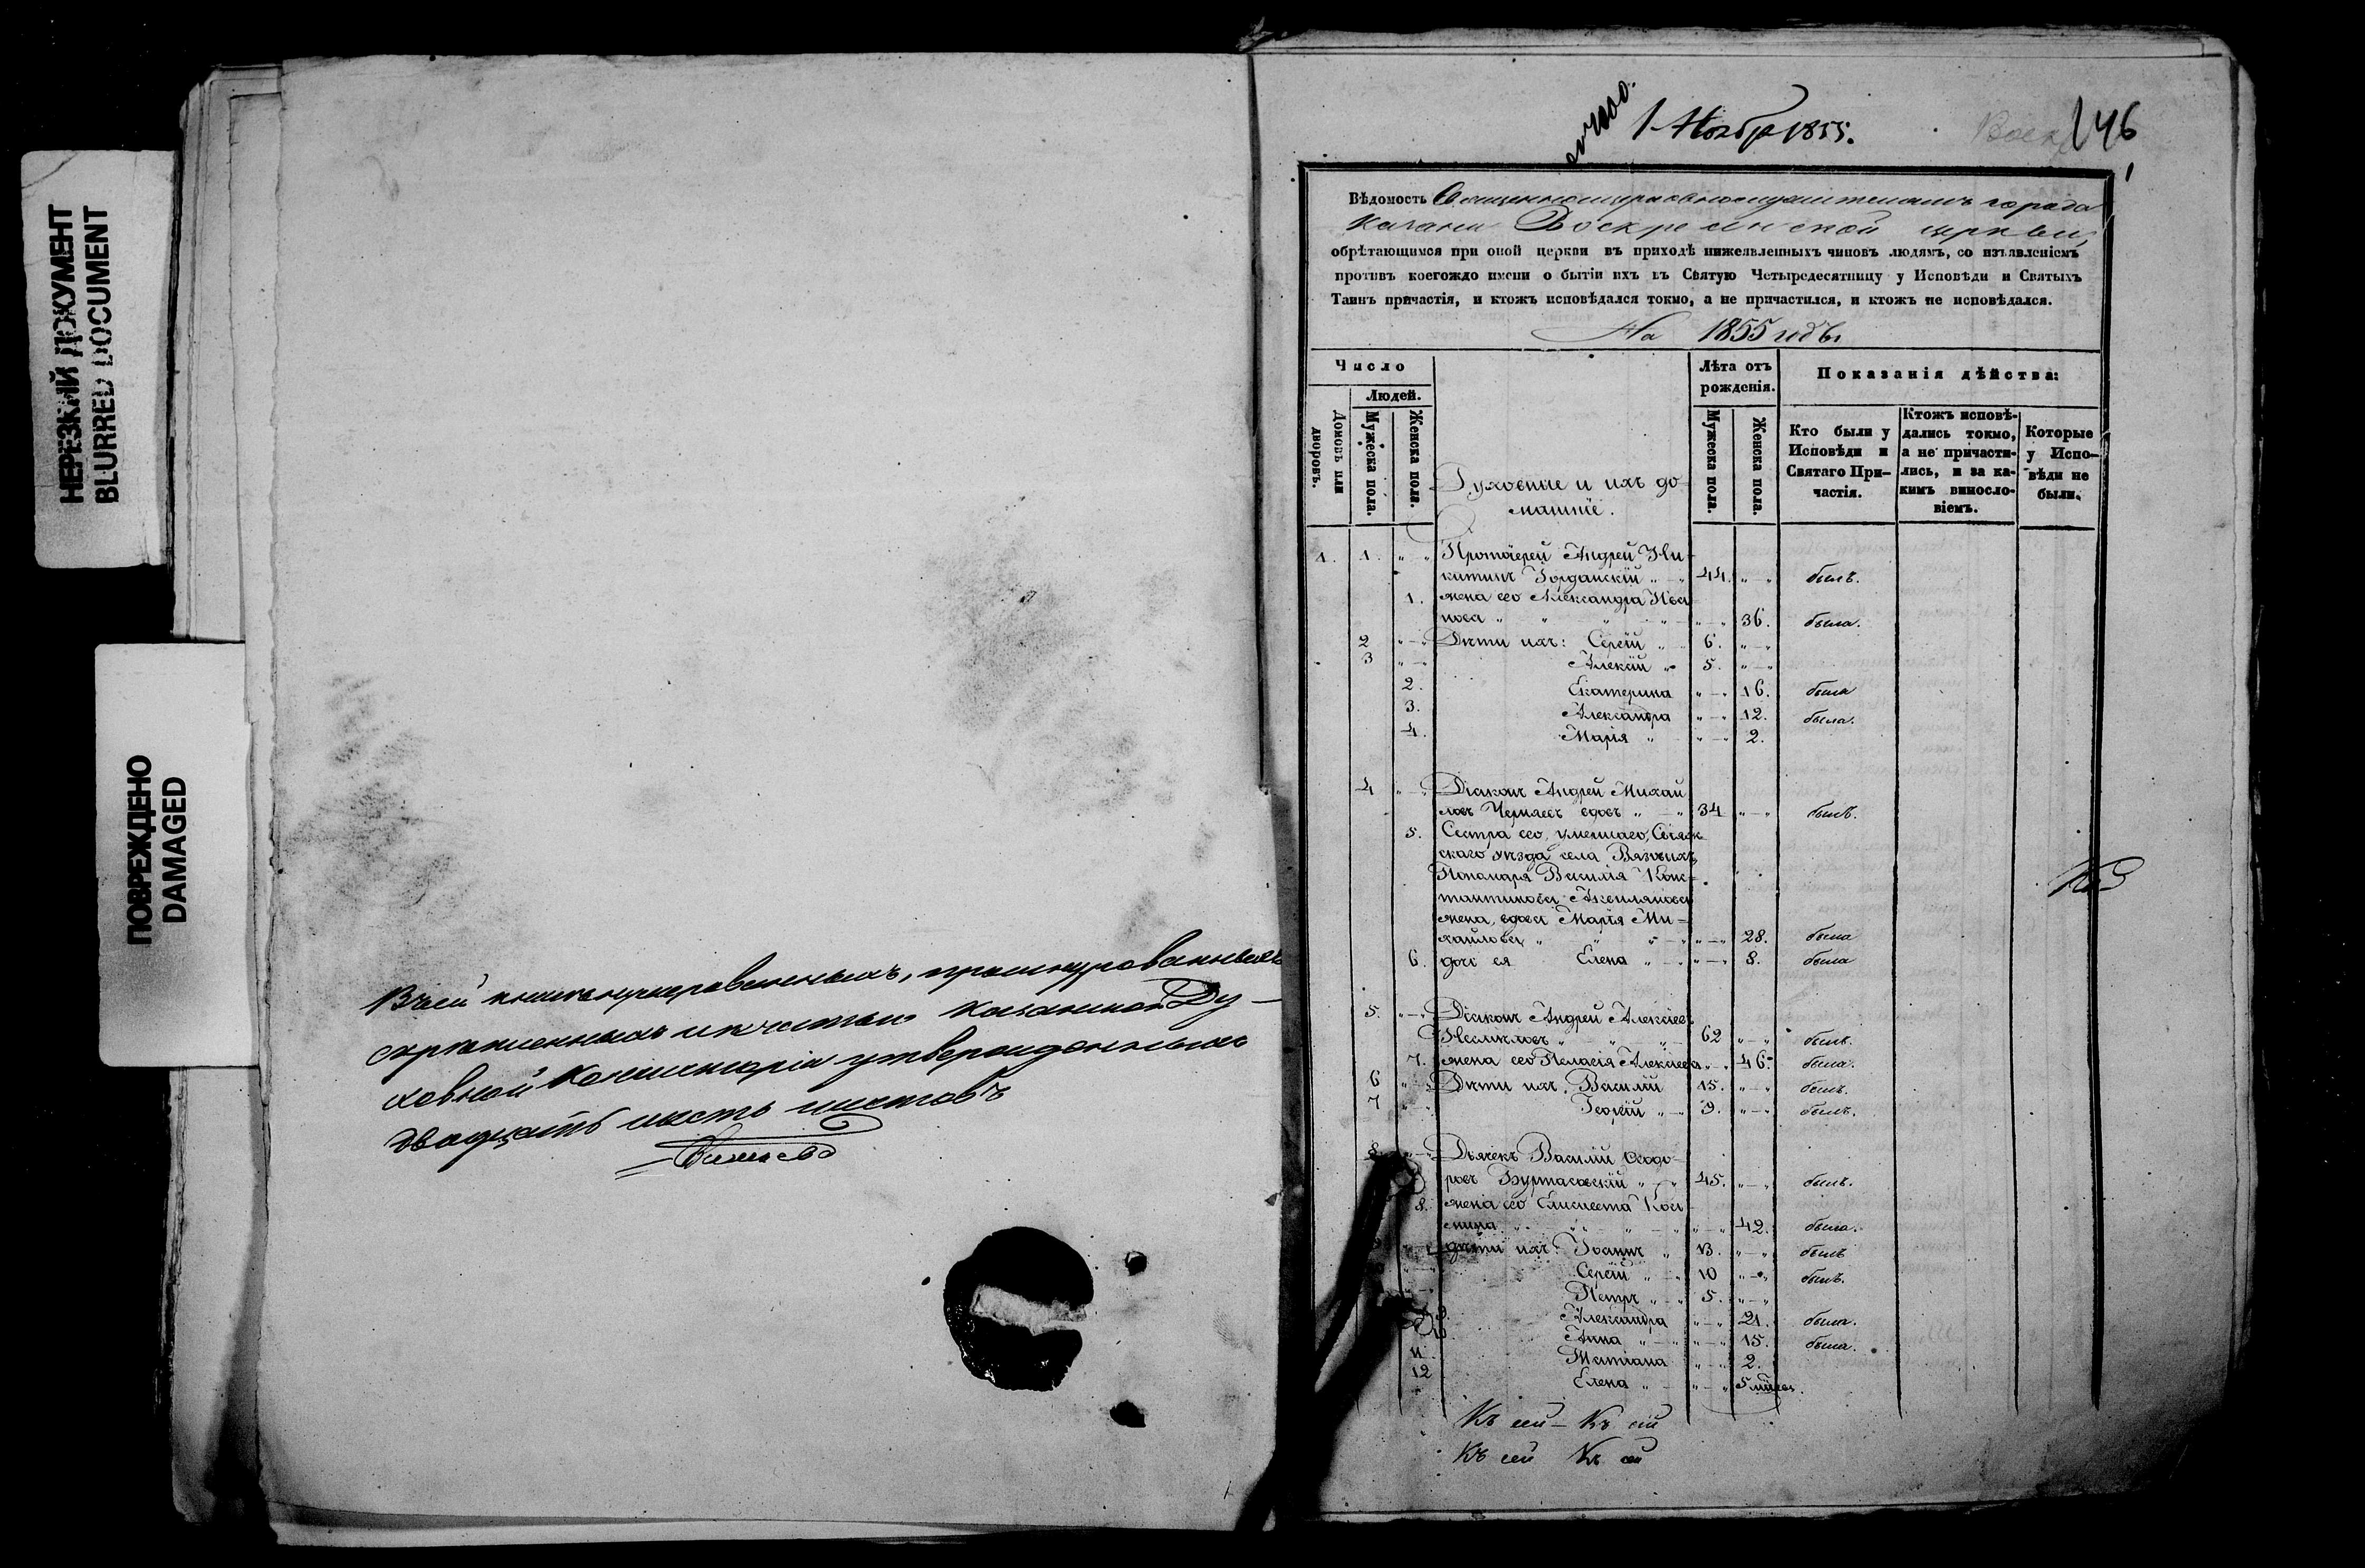 НЕРЕЗКИЙ ДОКУМЕНТ
BLURRED DOCUMENT
ПОВРЕЖДЕНО
DAMAGED
Въ сей книге нумерованныхъ, прошнурованныхъ
скрепленныхъ и печатью Казанской Ду-
ховной Консисторіи утвержденныхъ
двадцать шесть листовъ
1 Ноября 1855.
146
Вѣдомость Священноцерковнослужителямъ города
Казани Воскресенской церкви,
обрѣтающимся при оной церкви въ приходѣ нижеявленныхъ чиновъ людямъ, со изъявленіемъ
противъ коегождо имени о бытіи ихъ въ Святую Четыредесятницу у Исповѣди и Святыхъ
Таинъ причастія, и ктожъ исповѣдался токмо, а не причастился, и ктожъ не исповѣдался.
На 1855 годъ
Число
Людей.
Домовъ или дворовъ.
Мужеска пола.
Женска пола.
Духовные и ихъ до-
машніе.
Лѣта отъ рожденія.
Мужеска пола.
Женска пола.
Показанія дѣйства:
Кто были у Исповѣди и Святаго При-частія.
Ктожъ исповѣ-дались токмо, а не причасти-лись, и за ка-кимъ винословіемъ.
Которые у Испо-вѣди не были.
1. 1. " " Протоіерей Андрей Ни-
китинъ Іорданскій " " 44. " " былъ.
1. жена его Александра Ива
нова " " " " 36. была.
2 " " Дѣти ихъ: Сергій " 6. " "
3 " " Алексій " 5. " "
2. Екатерина " " 16. была
3. Александра " " 12. была.
4. Марія " " " 2.
4 " " Діаконъ Андрей Михай
ловъ Черняевъ вдовъ " " 34 " " былъ.
5. Сестра его, умершаго, Свіяж
скаго уѣзда села Вязовыхъ
Пономаря Василія Конс-
тантинова
жена, вдова Марія Ми-
хайлова " " " " 28. была
6. дочь ея Елена " " " 8. была
5. " " Діаконъ Андрей Алексѣевъ
62 " " былъ.
7. жена его Пелагія Алексѣева " " 46. была.
6 " " Дѣти ихъ, Василій 15. " " былъ.
7 " " Георгій " 9. " " былъ.
8 " " Дьячекъ Василій Ѳеодо-
ровъ Бурнасовскій " " 45. " " былъ.
8. жена его Елисавета Кос
мина " " " " 42. была.
" " дѣти ихъ: Іоаннъ " 13. " " былъ
" " Сергій " 10 " " былъ.
Петръ " 5. " "
9. Александра " " 21. была.
10. Анна " " " 15. была.
11. Татіана " " 2.
12 Елена " " " 5 мѣсяц.
Къ сей – Къ сей
Къ сей Къ сей